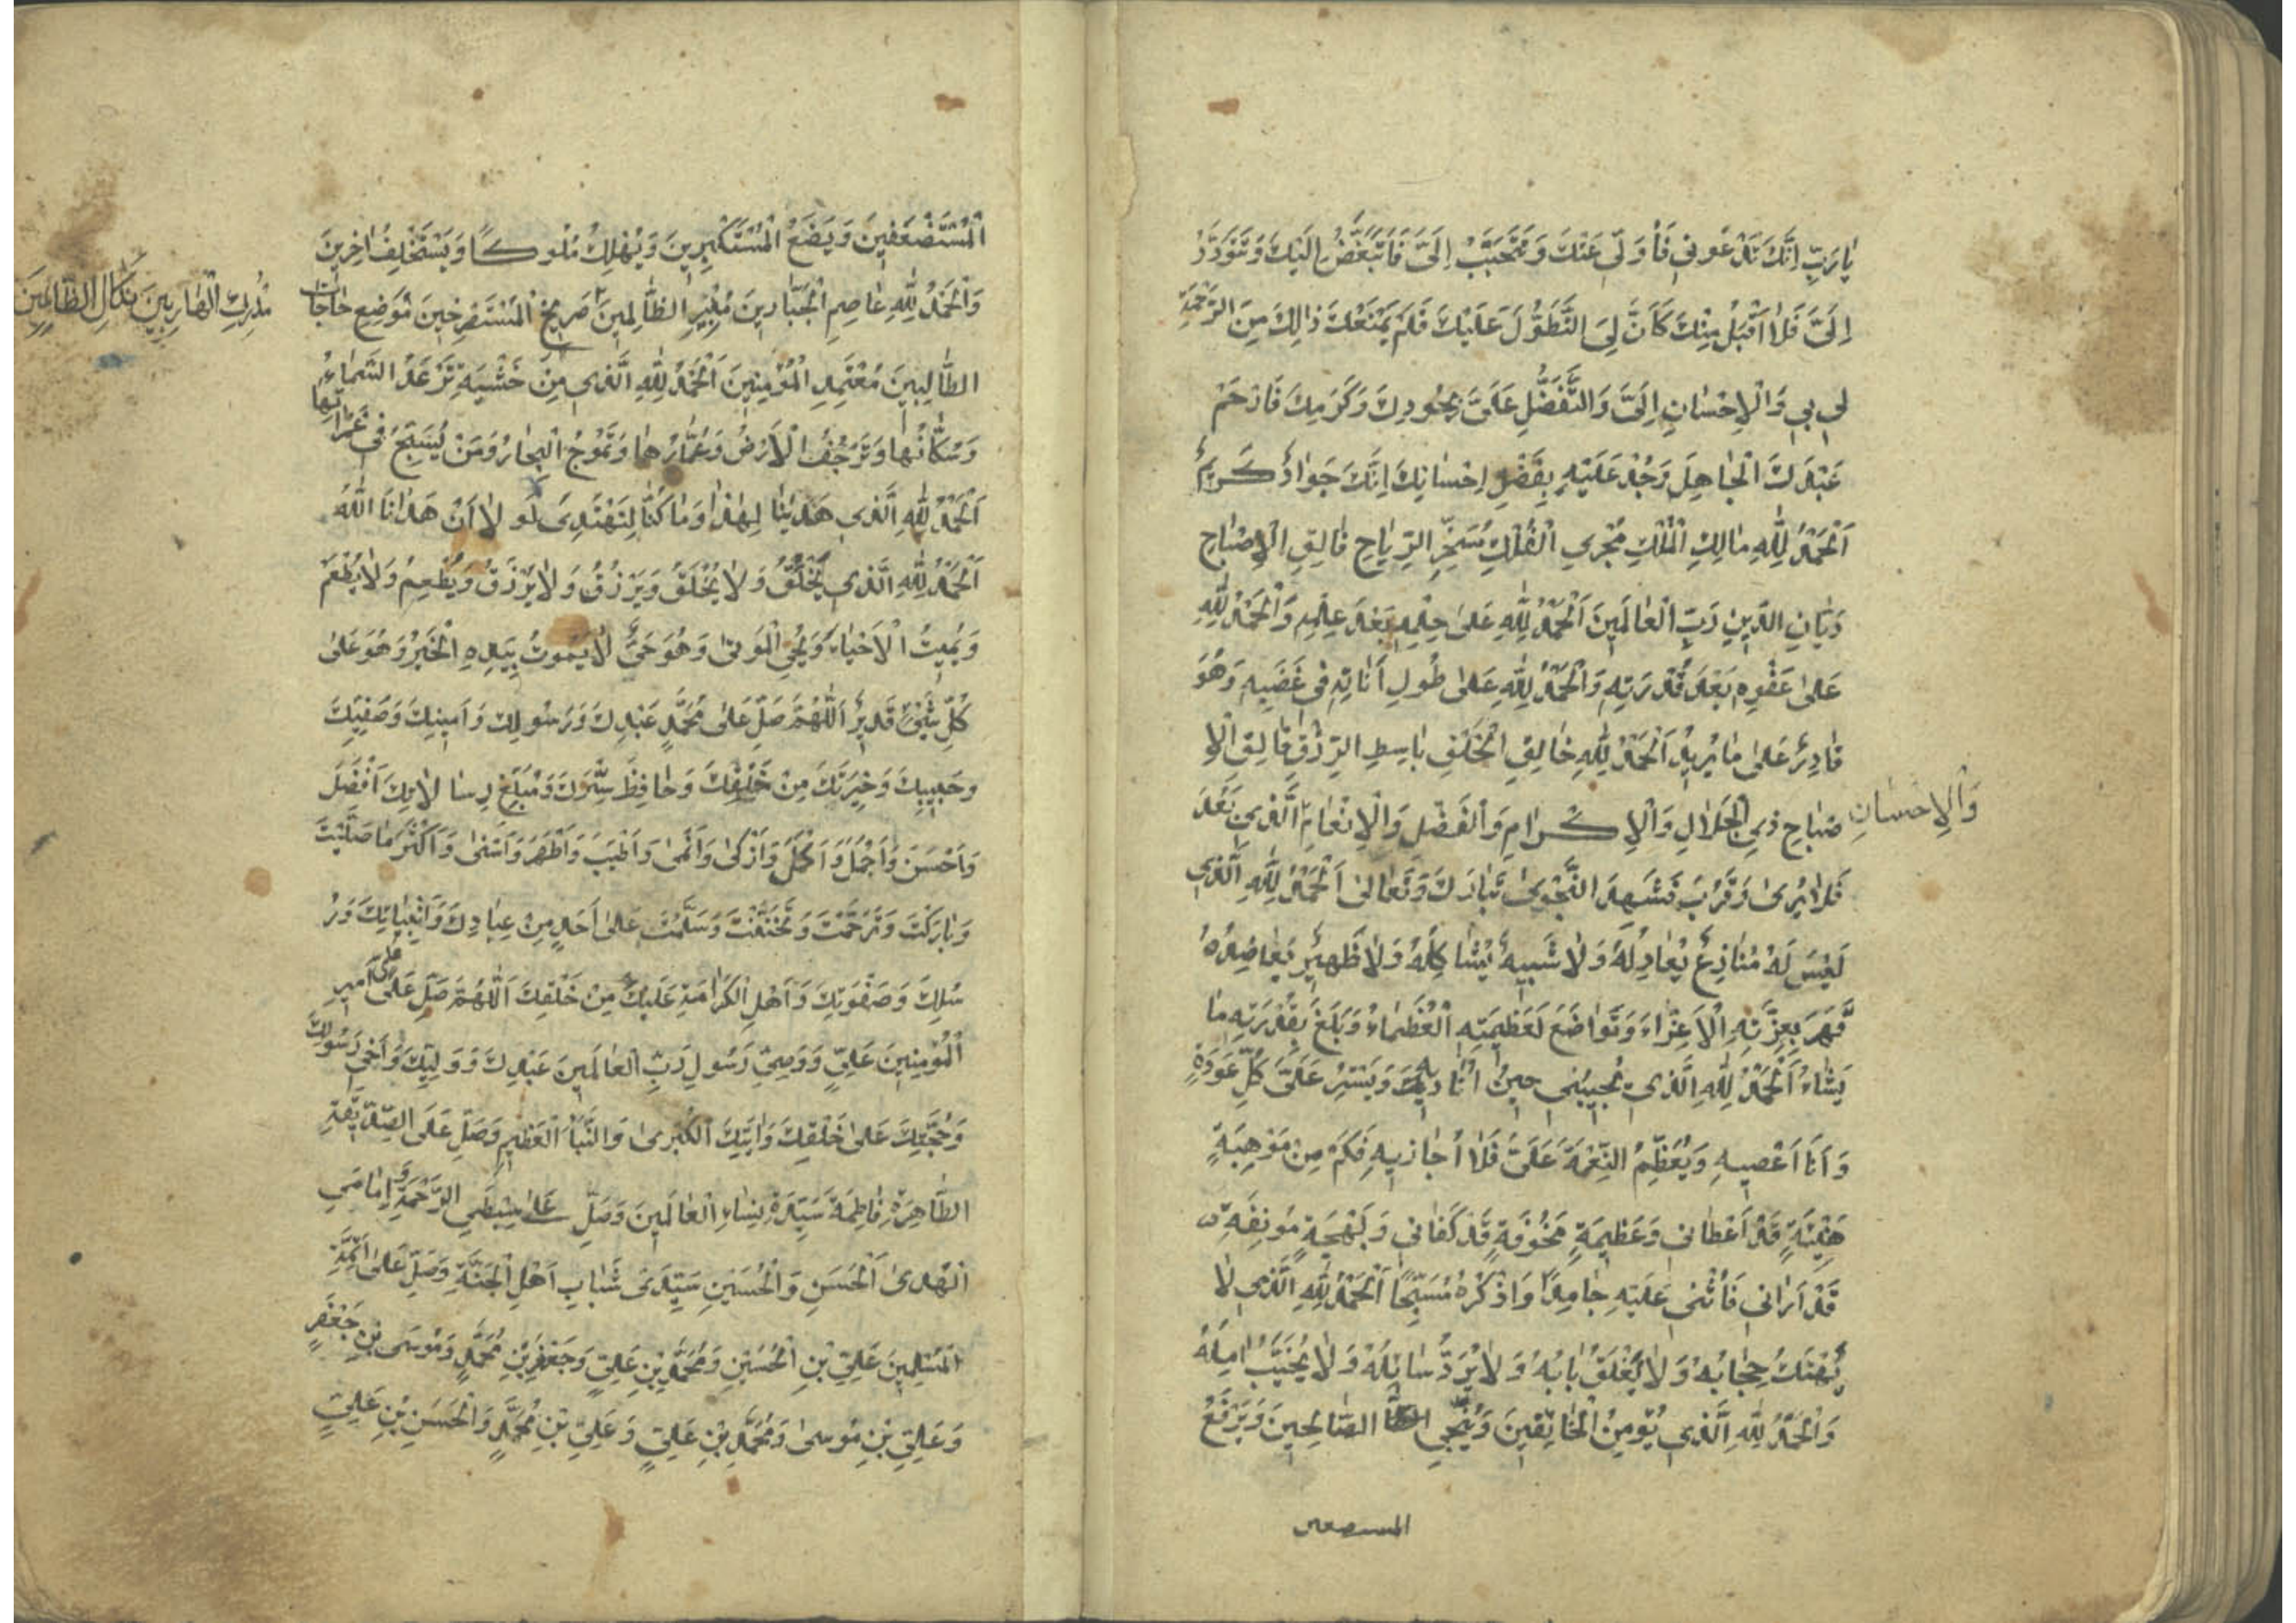 يٰا رَبِّ اِنَّكَ تَدْعُونِي فَاُوَلِّي عَنْكَ وَتَتَحَبَّبُ اِلَيَّ فَاَتَبَغَّضُ اِلَيْكَ وَتَتَوَدَّدُ
اِلَيَّ فَلاٰ اَقْبَلُ مِنْكَ كَاَنَّ لِيَ التَّطَوُّلَ عَلَيْكَ فَلَمْ يَمْنَعْكَ ذٰالِكَ مِنَ الرَّحْمَةِ
لِي بِي وَالْاِحْسٰانِ اِلَيَّ وَالتَّفَضُّلِ عَلَيَّ بِجُودِكَ وَكَرَمِكَ فَارْحَمْ
عَبْدَكَ الْجٰاهِلَ وَجُدْ عَلَيْهِ بِفَضْلِ اِحْسٰانِكَ اِنَّكَ جَوٰادٌ كَرِيمٌ
اَلْحَمْدُ لِلّٰهِ مٰالِكِ الْمُلْكِ مُجْرِي الْفُلْكِ مُسَخِّرِ الرِّيٰاحِ فٰالِقِ الْاِصْبٰاحِ
دَيّٰانِ الدِّينِ رَبِّ الْعٰالَمِينَ اَلْحَمْدُ لِلّٰهِ عَلىٰ حِلْمِهِ بَعْدَ عِلْمِهِ وَالْحَمْدُ لِلّٰهِ
عَلىٰ عَفْوِهِ بَعْدَ قُدْرَتِهِ وَالْحَمْدُ لِلّٰهِ عَلىٰ طُولِ اَنٰاتِهِ فِي غَضَبِهِ وَهُوَ
قٰادِرٌ عَلىٰ مٰا يُرِيدُ اَلْحَمْدُ لِلّٰهِ خٰالِقِ الْخَلْقِ بٰاسِطِ الرِّزْقِ فٰالِقِ الْاِ
صْبٰاحِ ذِي الْجَلاٰلِ وَالْاِكْرٰامِ وَالْفَضْلِ وَالْاِنْعٰامِ الَّذِي بَعُدَ
وَالْاِحْسٰانِ
فَلاٰ يُرىٰ وَقَرُبَ فَشَهِدَ النَّجْوىٰ تَبٰارَكَ وَتَعٰالىٰ اَلْحَمْدُ لِلّٰهِ الَّذِي
لَيْسَ لَهُ مُنٰازِعٌ يُعٰادِلُهُ وَلاٰ شَبِيهٌ يُشٰاكِلُهُ وَلاٰ ظَهِيرٌ يُعٰاضِدُهُ
قَهَرَ بِعِزَّتِهِ الْاَعِزّٰاءَ وَتَوٰاضَعَ لَعَظِيمَتِهِ الْعُظَمٰاءُ وَبَلَغَ بِقُدْرَتِهِ مٰا
يَشٰاءُ اَلْحَمْدُ لِلّٰهِ الَّذِي يُجِيبُنِي حِينَ اُنٰادِيهِ وَيَسْتُرُ عَلَيَّ كُلَّ عَوْرَةٍ
وَاَنَا اَعْصِيهِ وَيُعَظِّمُ النِّعْمَةَ عَلَيَّ فَلاٰ اُجٰازِيهِ فَكَمْ مِنْ مَوْهِبَةٍ
هَنِيئَةٍ قَدْ اَعْطٰانِي وَعَظِيمَةٍ مَخُوفَةٍ قَدْ كَفٰانِي وَبَهْجَةٍ مُونِقَةٍ
قَدْ اَرٰانِي فَاُثْنِي عَلَيْهِ حٰامِدًا وَاَذْكُرُهُ مُسَبِّحًا اَلْحَمْدُ لِلّٰهِ الَّذِي لاٰ
يُهْتَكُ حِجٰابُهُ وَلاٰ يُغْلَقُ بٰابُهُ وَلاٰ يُرَدُّ سٰائِلُهُ وَلاٰ يُخَيَّبُ اٰمِلُهُ
وَالْحَمْدُ لِلّٰهِ الَّذِي يُؤْمِنُ الْخٰائِفِينَ وَيُنَجِّي الصّٰالِحِينَ وَيَرْفَعُ
المستضعفين
الْمُسْتَضْعَفِينَ وَيَضَعُ الْمُسْتَكْبِرِينَ وَيُهْلِكُ مُلُوكًا وَيَسْتَخْلِفُ اٰخِرِينَ
وَالْحَمْدُ لِلّٰهِ قٰاصِمِ الْجَبّٰارِينَ مُبِيرِ الظّٰالِمِينَ صَرِيخِ الْمُسْتَصْرِخِينَ مَوْضِعِ حٰاجٰاتِ
مُدْرِكِ الْهٰارِبِينَ نَكٰالِ الظّٰالِمِينَ
الطّٰالِبِينَ مُعْتَمَدِ الْمُؤْمِنِينَ اَلْحَمْدُ لِلّٰهِ الَّذِي مِنْ خَشْيَتِهِ تَرْعَدُ السَّمٰاءُ
وَسُكّٰانُهٰا وَتَرْجُفُ الْاَرْضُ وَعُمّٰارُهٰا وَتَمُوجُ الْبِحٰارُ وَمَنْ يُسَبِّحُ فِي غَمَرٰاتِهٰا
اَلْحَمْدُ لِلّٰهِ الَّذِي هَدٰينٰا لِهٰذٰا وَمٰا كُنّٰا لِنَهْتَدِيَ لَوْ لاٰ اَنْ هَدٰانَا اللّٰهُ
اَلْحَمْدُ لِلّٰهِ الَّذِي يَخْلُقُ وَلاٰ يُخْلَقُ وَيَرْزُقُ وَلاٰ يُرْزَقُ وَيُطْعِمُ وَلاٰ يُطْعَمُ
وَيُمِيتُ الْاَحْيٰاءَ وَيُحْيِي الْمَوْتىٰ وَهُوَ حَيٌّ لاٰ يَمُوتُ بِيَدِهِ الْخَيْرُ وَهُوَ عَلىٰ
كُلِّ شَيْءٍ قَدِيرٌ اَللّٰهُمَّ صَلِّ عَلىٰ مُحَمَّدٍ عَبْدِكَ وَرَسُولِكَ وَاَمِينِكَ وَصَفِيِّكَ
وَحَبِيبِكَ وَخِيَرَتِكَ مِنْ خَلْقِكَ وَحٰافِظِ سِرِّكَ وَمُبَلِّغِ رِسٰالاٰتِكَ اَفْضَلَ
وَاَحْسَنَ وَاَجْمَلَ وَاَكْمَلَ وَاَزْكىٰ وَاَنْمىٰ وَاَطْيَبَ وَاَطْهَرَ وَاَسْنىٰ وَاَكْثَرَ مٰا صَلَّيْتَ
وَبٰارَكْتَ وَتَرَحَّمْتَ وَتَحَنَّنْتَ وَسَلَّمْتَ عَلىٰ اَحَدٍ مِنْ عِبٰادِكَ وَاَنْبِيٰائِكَ وَرُ
سُلِكَ وَصَفْوَتِكَ وَاَهْلِ الْكَرٰامَةِ عَلَيْكَ مِنْ خَلْقِكَ اَللّٰهُمَّ صَلِّ عَلىٰ عَلِيٍّ اَمِيرِ
الْمُؤْمِنِينَ عَلِيٍّ وَوَصِيِّ رَسُولِ رَبِّ الْعٰالَمِينَ عَبْدِكَ وَوَلِيِّكَ وَاَخِي رَسُولِكَ
وَحُجَّتِكَ عَلىٰ خَلْقِكَ وَاٰيَتِكَ الْكُبْرىٰ وَالنَّبَأِ الْعَظِيمِ وَصَلِّ عَلَى الصِّدِّيقَةِ
الطّٰاهِرَةِ فٰاطِمَةَ سَيِّدَةِ نِسٰاءِ الْعٰالَمِينَ وَصَلِّ عَلىٰ سِبْطَيِ الرَّحْمَةِ وَاِمٰامَيِ
الْهُدىٰ اَلْحَسَنِ وَالْحُسَيْنِ سَيِّدَيْ شَبٰابِ اَهْلِ الْجَنَّةِ وَصَلِّ عَلىٰ اَئِمَّةِ
الْمُسْلِمِينَ عَلِيِّ بْنِ الْحُسَيْنِ وَمُحَمَّدِ بْنِ عَلِيٍّ وَجَعْفَرِ بْنِ مُحَمَّدٍ وَمُوسَى بْنِ جَعْفَرٍ
وَعَلِيِّ بْنِ مُوسىٰ وَمُحَمَّدِ بْنِ عَلِيٍّ وَعَلِيِّ بْنِ مُحَمَّدٍ وَالْحَسَنِ بْنِ عَلِيٍّ